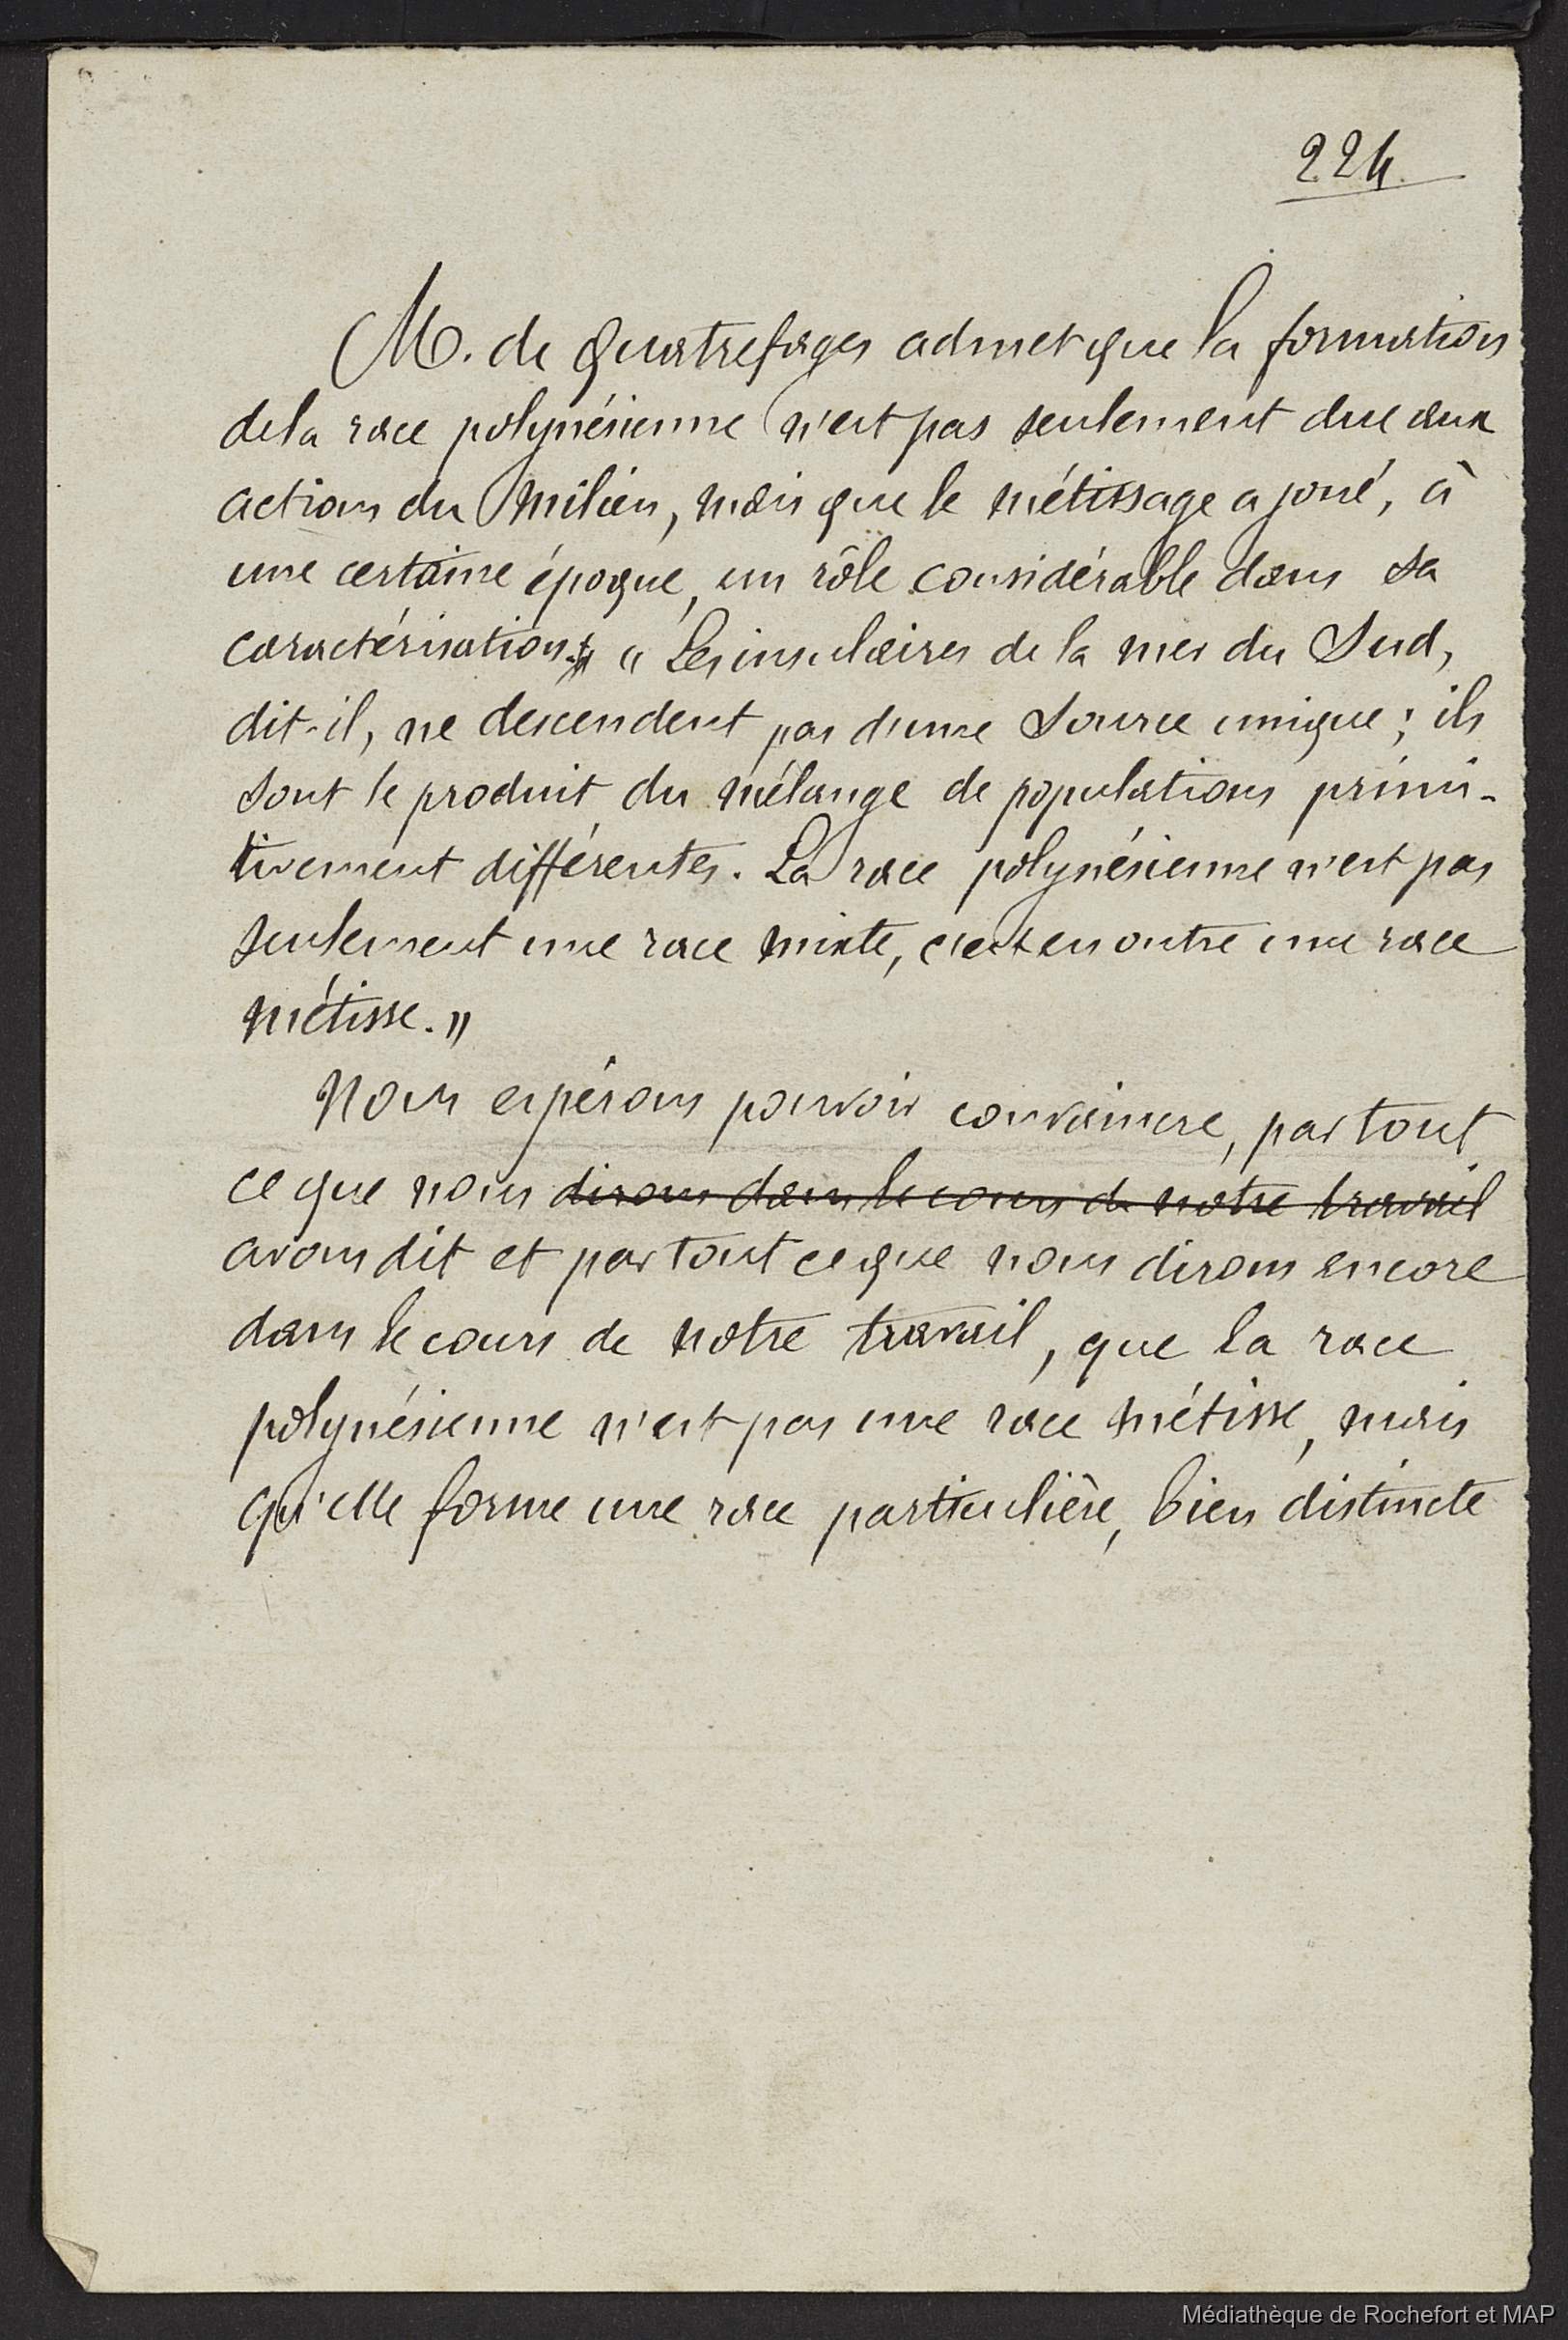 224
M. de Quatrefages admet que la formation
de la race polynésienne n'est pas seulement due aux
actions du milieu, mais que le métissage a joué, à
une certaine époque, un rôle considérable dans sa
caractérisation. « Les insulaires de la mer du Sud,
dit-il, ne descendent pas d'une source unique ; ils
sont le produit du mélange de populations primi-
tivement différentes. La race polynésienne n'est pas
seulement une race mixte, c'est en outre une race
métisse. »
Nous espérons pouvoir convaincre, par tout
ce que nous dirons dans le cours de notre travail
avons dit et par tout ce que nous dirons encore
dans le cours de notre travail, que la race
polynésienne n'est pas une race métisse, mais
qu'elle forme une race particulière, bien distincte
Médiathèque de Rochefort et MAP